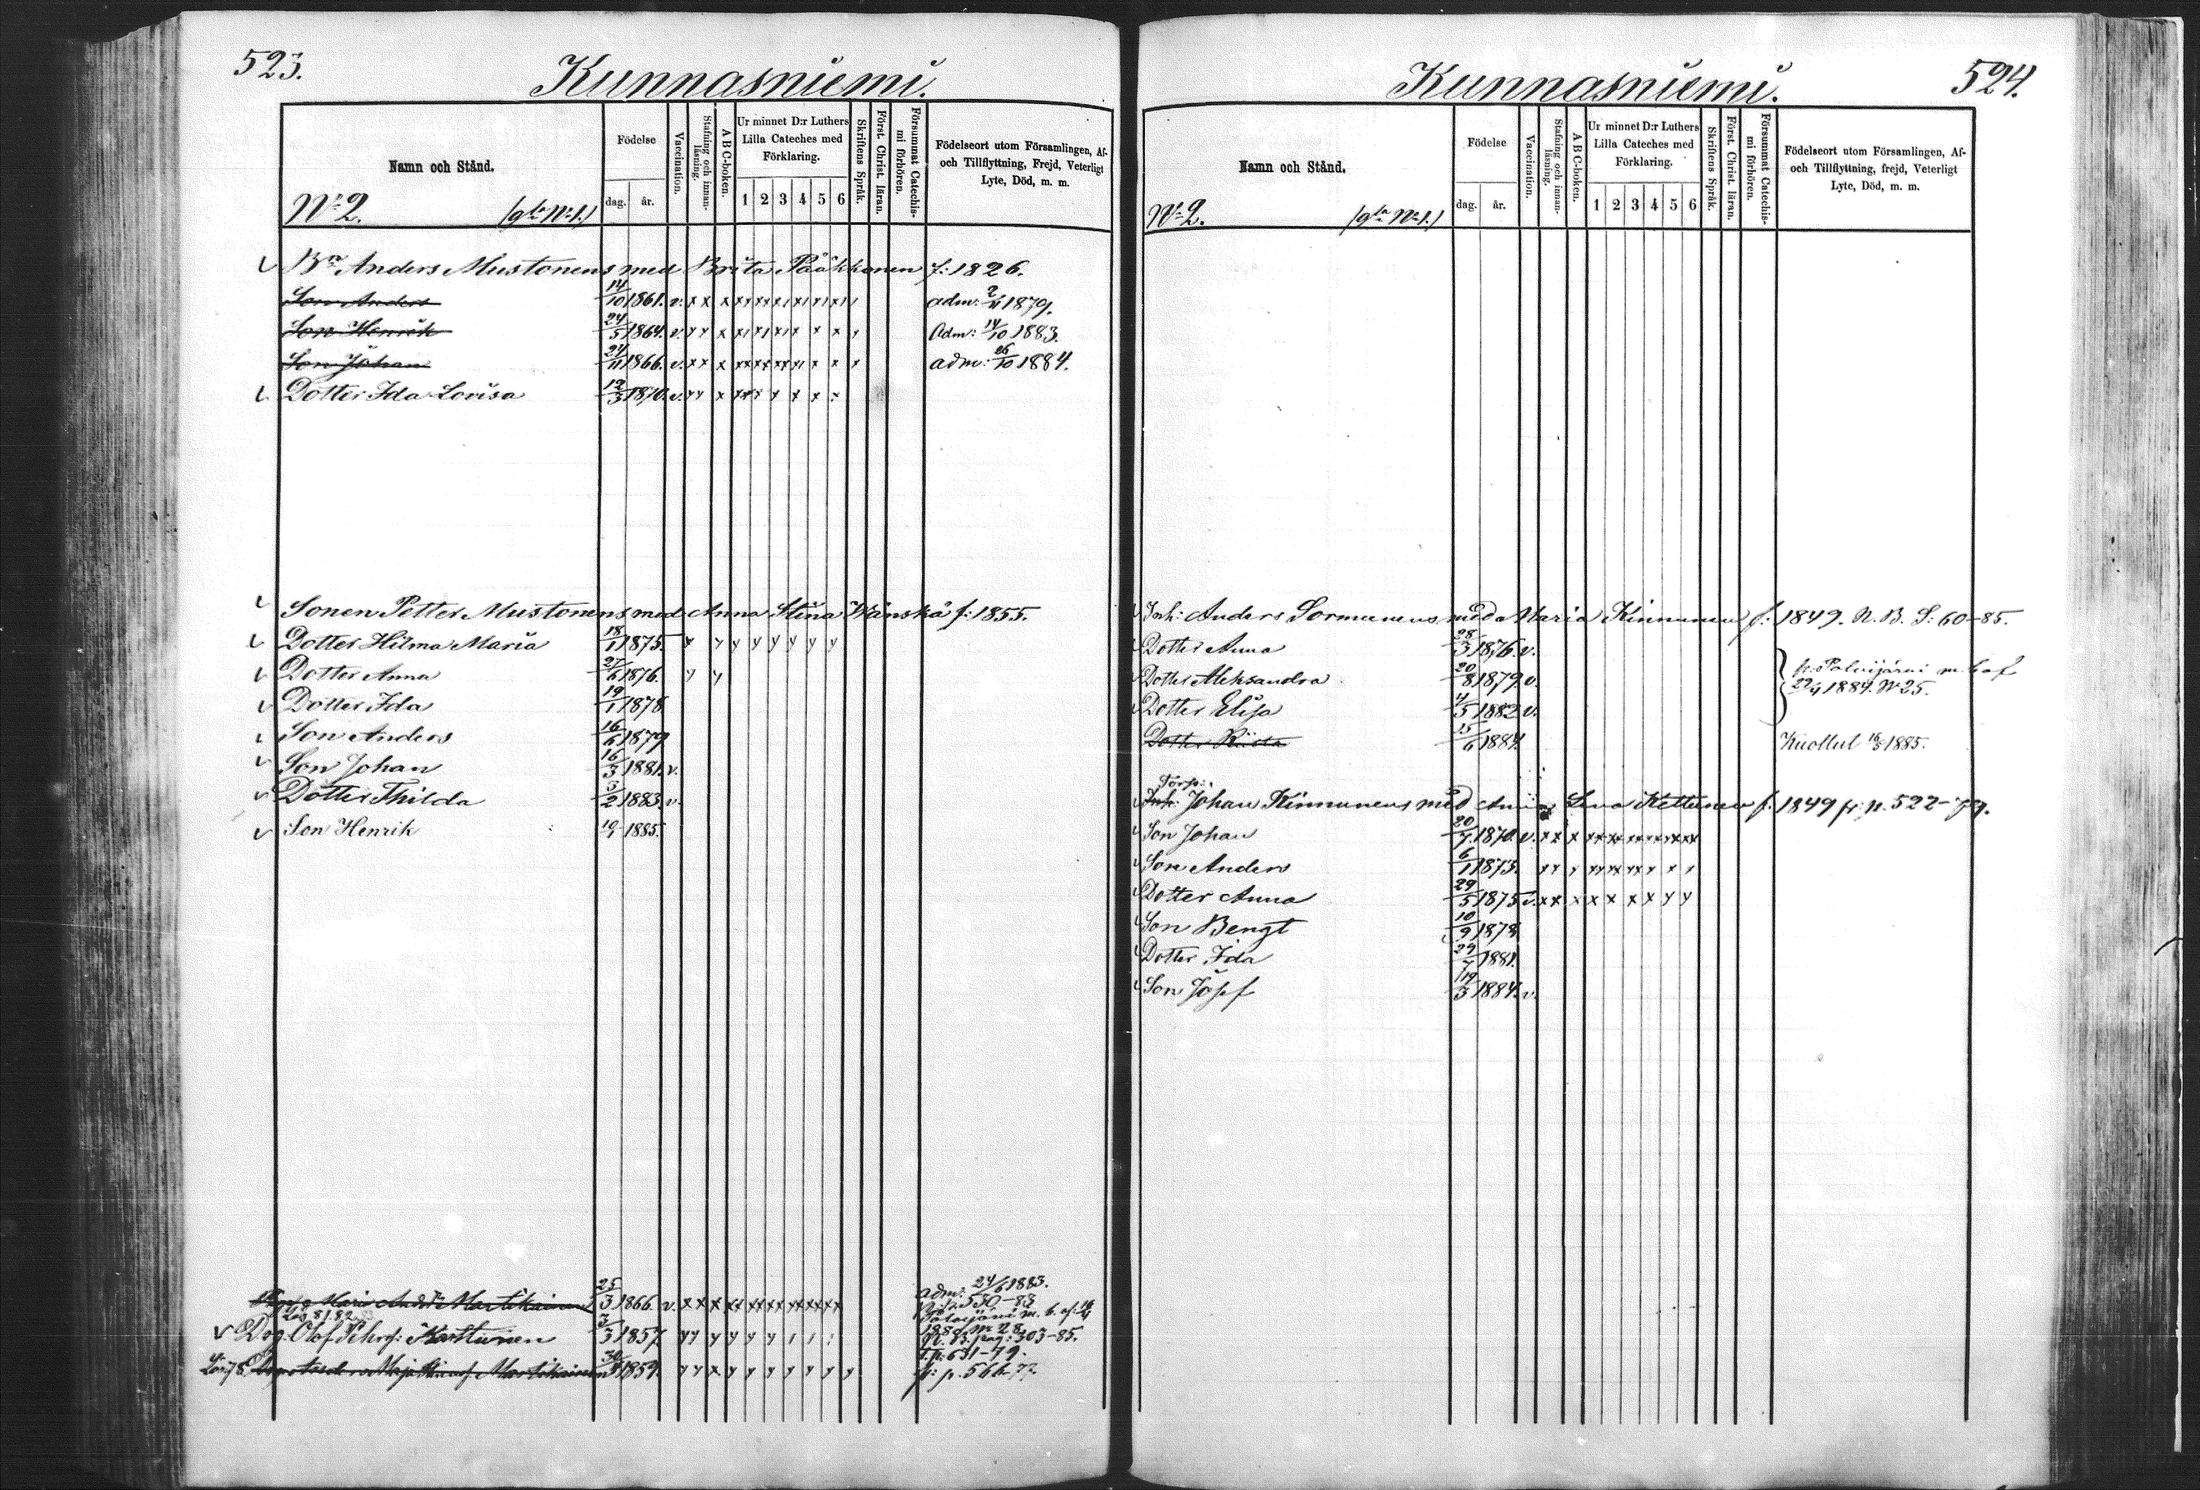 523.
Kunnasniemi.
Namn och Stånd.
Födelse
dag. år.
Vaccination.
Stafning och innanläsning.
ABC-boken.
Ur minnet D:r Luthers Lilla Cateches med Förklaring.
1 2 3 4 5 6
Skriftens Språk.
Först. Christ. läran.
Försummat Catechismi förhören.
Födelseort utom Församlingen, Af-
och Tillflyttning, Frejd, Veterligt
Lyte, Död, m. m.
No 2. (gla No 1.)
Bn Anders Mustonens med Brita Pääkkönen f: 1826.
Son Anders 14/10 1861. v. adm: 2/11 1879.
Son Henrik 24/5 1864. v. Adm: 14/10 1883.
Son Johan 24/11 1866. v. adm: 26/10 1884.
Dotter Ida Lovisa 12/3 1870. v.
Sonen Petter Mustonens med Anna Stina Wänskä f: 1855.
Dotter Hilma Maria 18/1 1875.
Dotter Anna 27/6 1876.
Dotter Ida 19/1 1878
Son Anders 16/6 1879
Son Johan 16/3 1881. v.
Dotter Thilda 3/2 1883. v.
Son Henrik 19/1 1885.
25/3 1866. v. adm: 24/6 1883.
530-83
Drg. Olof Martikainen 3/3 1857
pag: 303-85.
631-79.
1859. fr: p. 566-77.
524.
Kunnasniemi.
Namn och Stånd.
Födelse
dag. år.
Vaccination.
Stafning och innanläsning.
ABC-boken.
Ur minnet D:r Luthers Lilla Cateches med Förklaring.
1 2 3 4 5 6
Skriftens Språk.
Först. Christ. läran.
Försummat Catechismi förhören.
Födelseort utom Församlingen, Af-
och Tillflyttning, frejd, Veterligt
Lyte, Död, m. m.
No 2. (gla No 1.)
Inh: Anders Sormunens med Maria Kinnunen f: 1849. N. B. S: 60-85.
Dotter Anna 28/3 1876. v.
Dotter Aleksandra 20/8 1879. v. fr. Polvijärvi m. b. af
29/4 1884. No 25.
Dotter Elisa 4/5 1882 v.
Dotter Riida 15/6 1884 Kuollut 16/5 1885.
Torp:
Inh: Johan Kinnunens med Anna Lena Kettunen f: 1849 fr: p. 522-79.
Son Johan 20/7 1870. v.
Son Anders 6/1 1873.
Dotter Anna 29/5 1875 v.
Son Bengt 10/9 1878
Dotter Ida 29/7 1881.
Son Josef 19/3 1884. v.